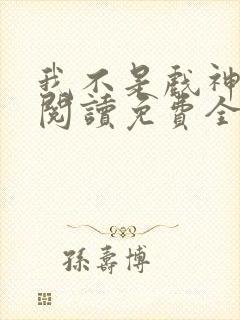 我不是戲神
閱讀免費全
孫壽博